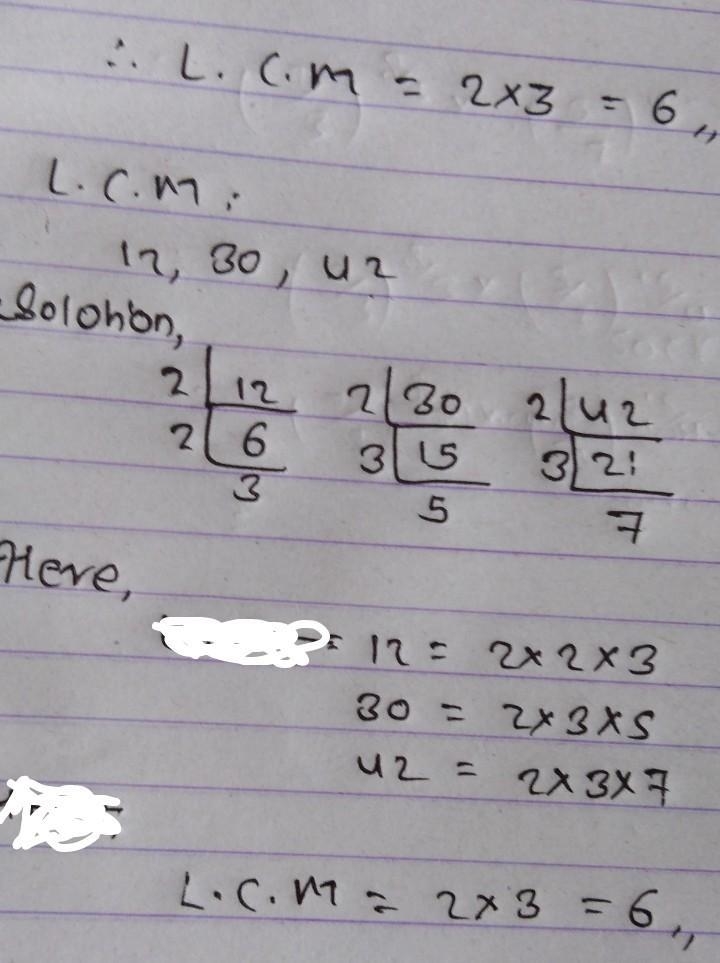 ∴ L.C.M = 2×3 = 6,,
L.C.M:
12, 30, 42
Solution,
2 12 2 30 2 42
2 6 3 15 3 21
3 5 7
Here,
= 12 = 2×2×3
30 = 2×3×5
42 = 2×3×7
L.C.M = 2×3 = 6,,